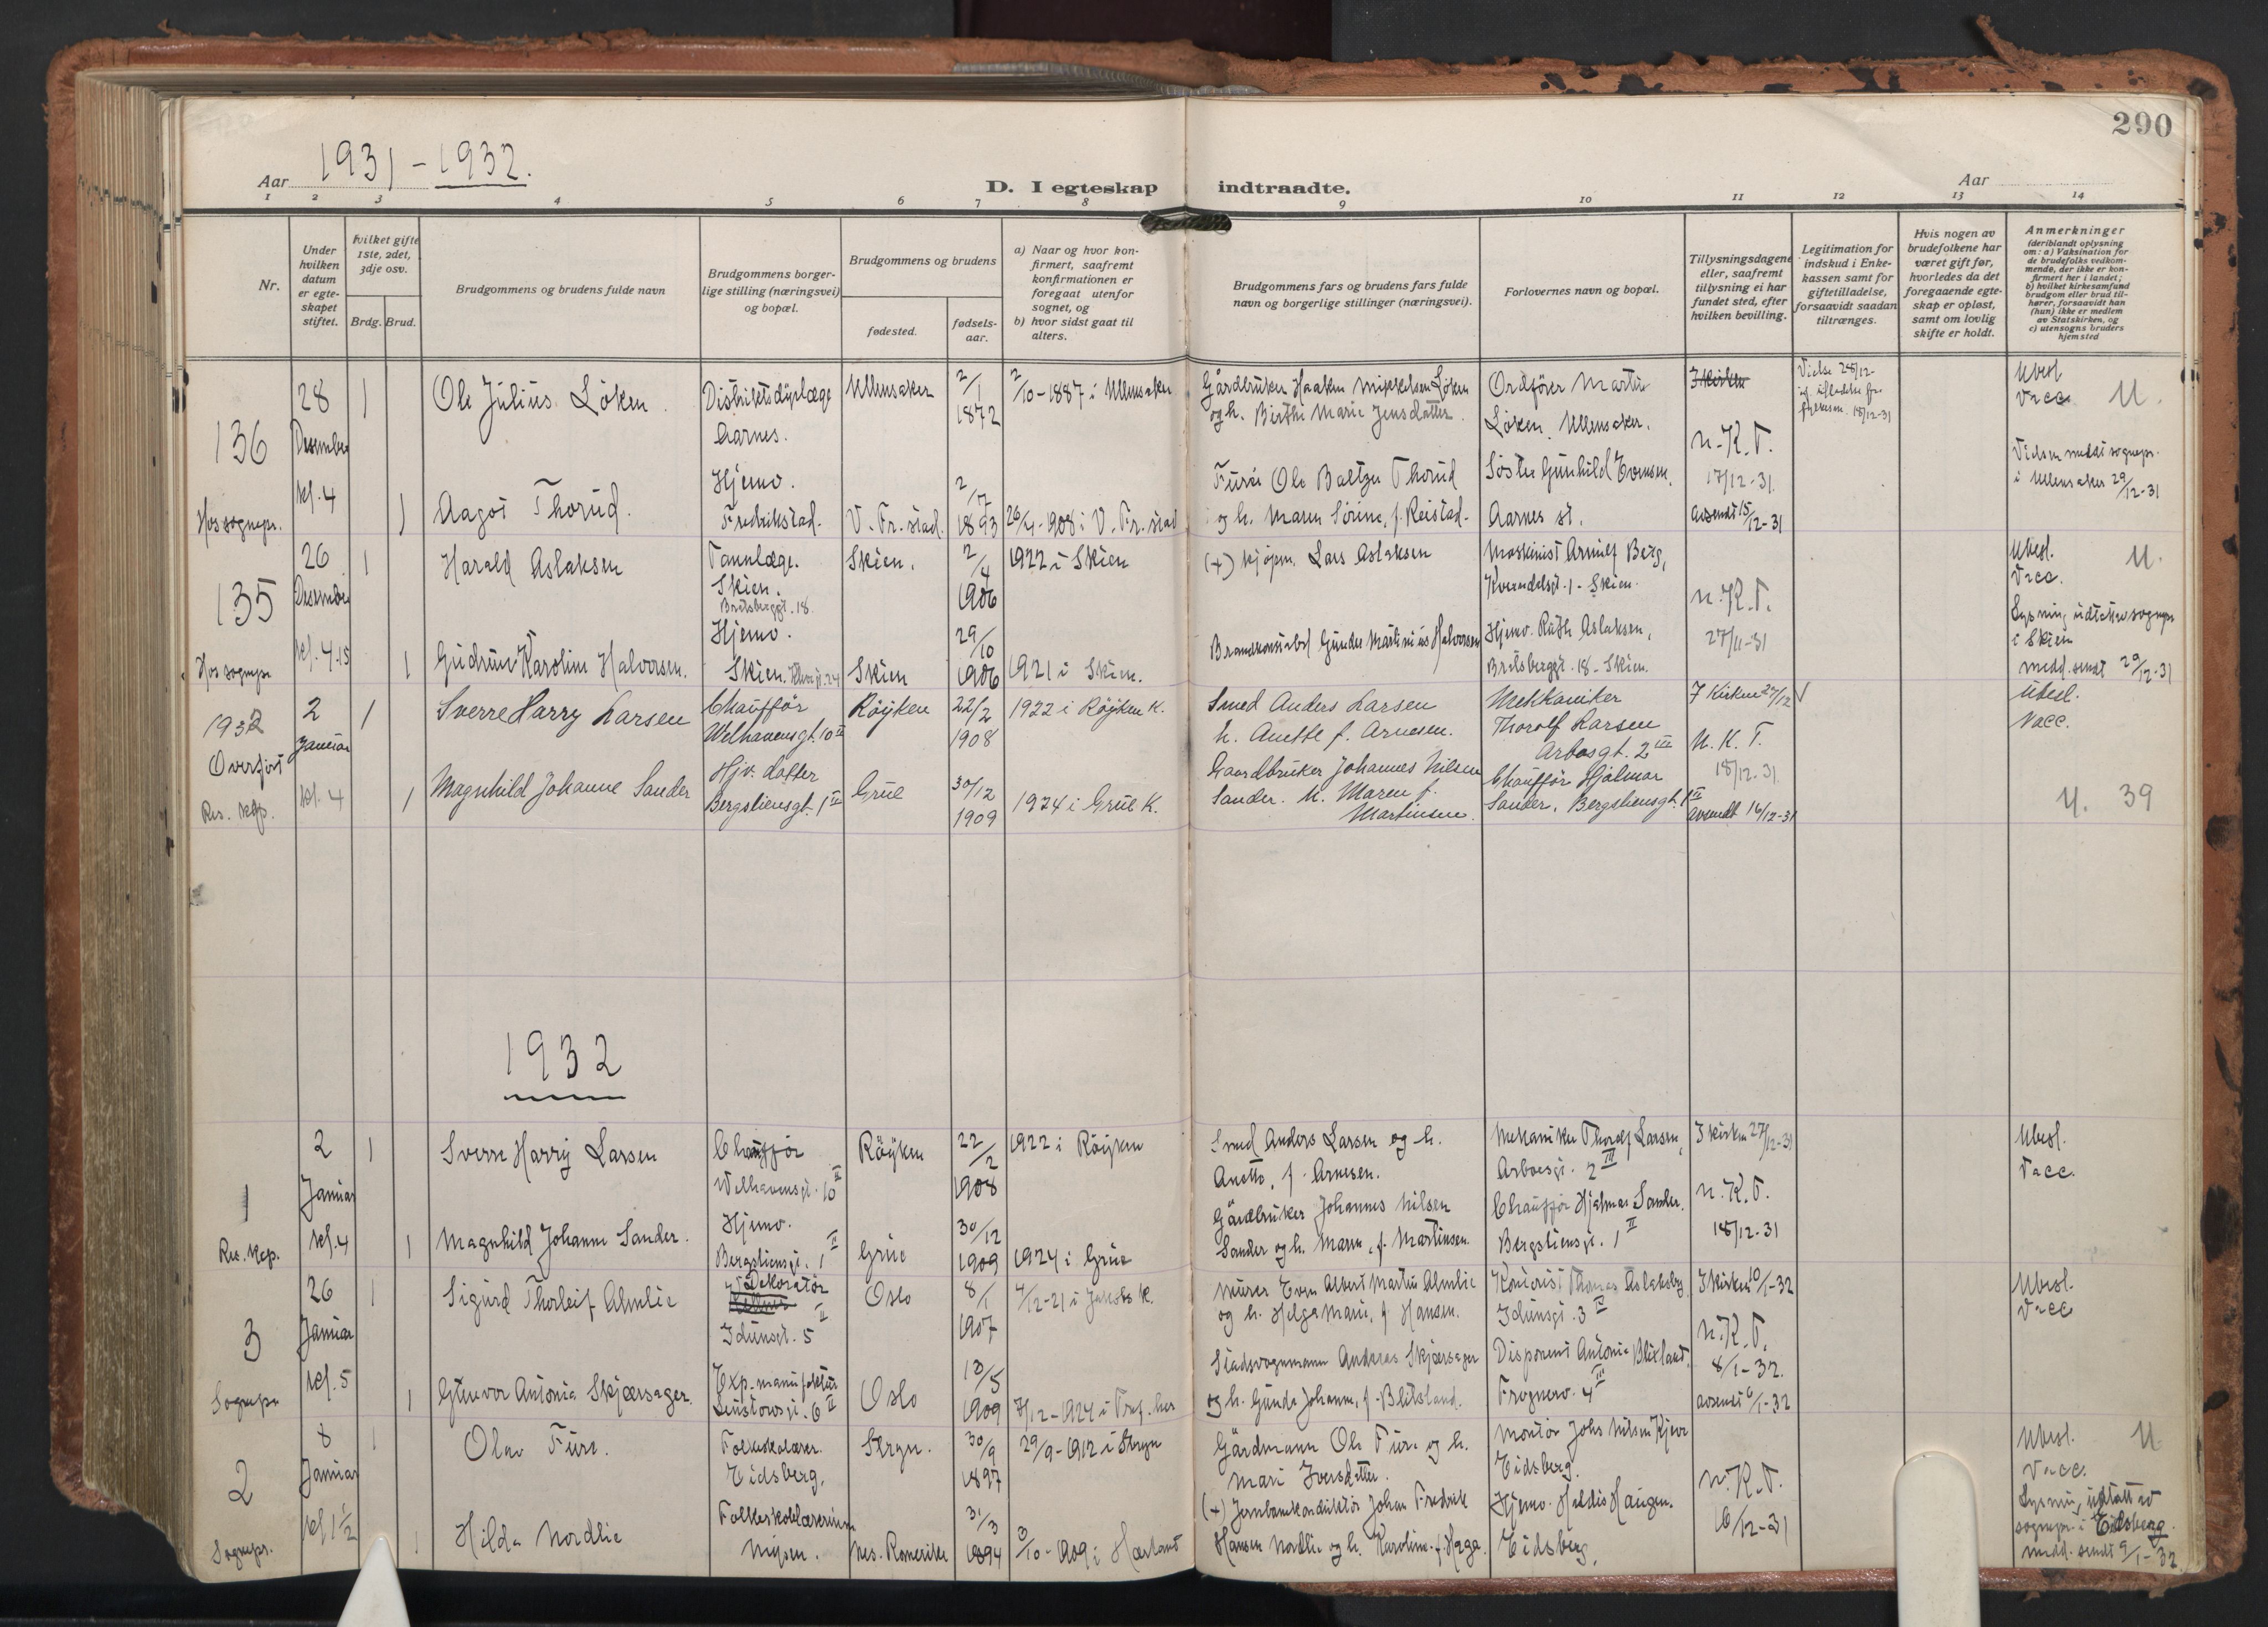 290
Aar 1931-1932.
D. I egteskap indtraadte.
Aar
1 2 3 4 5 6 7 8 9 10 11 12 13 14
Nr.
Under hvilken datum er egteskapet stiftet.
Hvilket gifte 1ste, 2det, 3dje osv.
Brdg. Brud.
Brudgommens og brudens fulde navn
Brudgommens borgerlige stilling (næringsvei) og bopæl.
Brudgommens og brudens
fødested.
fødselsaar.
a) Naar og hvor konfirmert, saafremt konfirmationen er foregaat utenfor sognet, og
b) hvor sidst gaat til alters.
Brudgommens fars og brudens fars fulde navn og borgerlige stillinger (næringsvei).
Forlovernes navn og bopæl.
Tillysningsdagene eller, saafremt tillysning ei har fundet sted, efter hvilken bevilling.
Legitimation for indskud i Enkekassen samt for giftetilladelse, forsaavidt saadan tiltrænges.
Hvis nogen av brudefolkene har været gift før, hvorledes da det foregaaende egteskap er opløst, samt om lovlig skifte er holdt.
Anmerkninger (deriblandt oplysning om: a) Vaksination for de brudefolks vedkommende, der ikke er konfirmert her i landet; b) hvilket kirkesamfund brudgom eller brud tilhører, forsaavidt han (hun) ikke er medlem av Statskirken, og c) utensogns bruders hjemsted
136
Hos sognepr.
28 Desember kl. 4
1
Ole Julius Løken.
Distriktsdyrlæge
Aarnes.
Ullensaker
2/1 1872
2/10-1887 i Ullensaker
Gårdbruker Haaken Mikkelsen Løken
og h. Birthe Marie Jensdatter.
Ordfører Martin
Løken, Ullensaker.
I kirken
N.K.T.
17/12-31.
avsendt 15/12-31
Vielse 28/12-
18/12-31
Ubesl.
Vacc. U.
i Ullensaker 29/12-31
1
Aagot Thorud.
Hjemv.
Fredrikstad.
V. Fr.stad.
2/7 1893
26/4-1908 i V. Fr.stad
Ole Baltzer Thorud
og h. Maren Sorine, f. Reistad.
Søster Gunhild Evensen,
Aarnes st.
135
Hos sognepr.
26 Desember kl. 4.15
1
Harald Aslaksen
Tannlæge.
Skien.
Bratsberggt. 18.
Skien.
2/4 1906
1922 i Skien
(+) Kjøpm. Lars Aslaksen
Maskinist Arnulf Berg,
Skien.
N.K.T.
27/11-31
Ubesl. U.
Vacc.
i Skien
medd. sendt 29/12-31
1
Gudrun Karoline Halvorsen.
Hjemv.
Skien.
Skien
29/10 1906
1921 i Skien.
Gunder Martinius Halvorsen
Hjemv. Ruth Aslaksen,
Bratsberggt. 18 - Skien.
1932
Overført
Res. kap.
2 Januar kl. 4
1
Sverre Harry Larsen
Chauffør
Welhavensgt. 10 II
Røyken
22/2 1908
1922 i Røyken K.
Smed Anders Larsen
h. Anette f. Arnesen.
Mekkaniker
Thorolf Larsen
Arbosgt. 2 III
I Kirken 27/12
N.K.T.
18/12.31.
avsendt 16/12-31
Ubesl.
Vacc.
U. 39
1
Magnhild Johanne Sander
Hjv. datter
Bergsliensgt. 1 II
Grue
30/12 1909
1924 i Grue K.
Gaardbruker Johannes Nilsen
Sander. h. Maren f.
Martinsen.
Chauffør Hjalmar
Sander, Bergsliensgt. 1 II
1932
1
Res. kap.
2 Januar kl. 4
1
Sverre Harry Larsen
Chauffør
Welhavensgt. 10 II
Røyken
22/2 1908
1922 i Røyken
Smed Anders Larsen og h.
Anette, f. Arnesen.
Mekaniker Thorolf Larsen,
Arbosgt. 2 III
I kirken 27/12-31
N.K.T.
18/12-31
Ubesl.
Vacc.
1
Magnhild Johanne Sander.
Hjemv.
Bergsliensgt. 1 II
Grue
30/12 1909
1924 i Grue
Gårdbruker Johannes Nilsen
Sander og h. Maren, f. Martinsen.
Chauffør Hjalmar Sander.
Bergsliensgt. 1 II
3
Sognepr.
26 Januar kl. 5
1
Sigurd Thorleif Almlie
Dekoratør
Idunsgt. 5 II
Oslo
8/1 1907
4/12-21 i Jakobs K.
Murer Even Albert Martin Almlie
og h. Helga Marie, f. Hansen.
Kontorist Thomas Aslaksby
Idunsgt. 3 IV
I kirken 10/1-32
N.K.T.
8/1-32.
avsendt 6/1-32
Ubesl.
Vacc
1
Gunvor Antonia Skjærsager.
Exp. manufaktur
Oslo
13/5 1909
7/12-1924 i
Stadsvognmann Andreas Skjærsager
og h. Gunda Johanne, f. Blixland.
Disponent Antonie Blixland,
Frognerv. 4 III
2
Sognepr.
8 Januar kl. 1 1/2
1
Olav Fure.
Folkeskolelærer.
Eidsberg.
Stryn.
30/9 1897
29/9-1912 i Stryn
Gårdmann Ole Fure og h.
Mari Iversdatter.
Montør Johs Nilsen Kjær
Eidsberg.
N.K.T.
16/12-31
Ubesl. U
Vacc.
Lysning utstatt av
sognepr. i Eidsberg.
medd. sendt 9/1-32
1
Hilda Nordlie
Folkeskolelærerinne
Mysen.
Nes. Romerike
31/3 1894
3/10-1909 i Hærland
(+) Jernbanekonduktør Johan Fredrik
Hansen Nordlie og h. Karoline f. Haga.
Hjemv. Haldis Haugen.
Eidsberg.